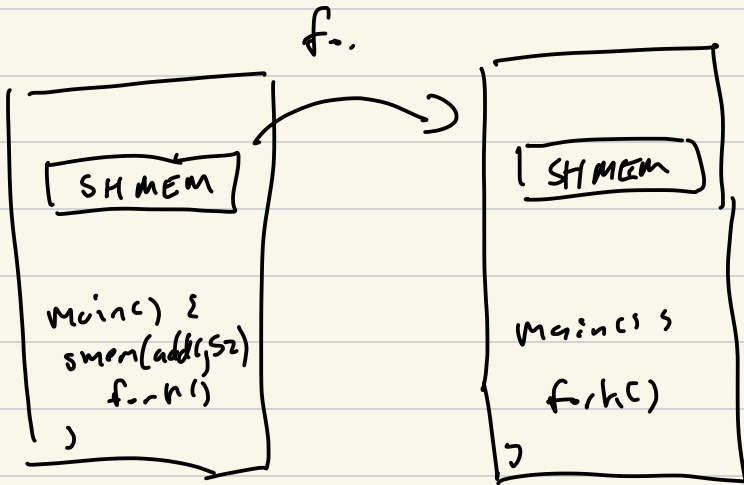 f..
SHMEM
main() {
smem(addr, sz)
fork()
}
SHMEM
main() {
fork()
}